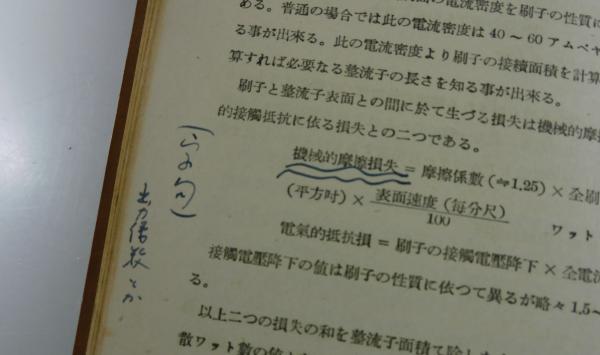 の電流密度を刷子の性質に
ある。普通の場合では此の電流密度は 40～60 アムペヤ
る事が出來る。此の電流密度より刷子の接續面積を計算
算すれば必要なる整流子の長さを知る事が出來る。
刷子と整流子表面との間に於て生づる損失は機械的摩擦
的接觸抵抗に依る損失との二つである。
機械的摩擦損失 = 摩擦係數(≒1.25) × 全刷
(平方吋) × 表面速度(毎分尺)
100
ワット
電氣的抵抗損 = 刷子の接觸電壓降下 × 全電流
接觸電壓降下の値は刷子の性質に依つて異るが略々 1.5～
る。
以上二つの損失の和を整流子面積で除し
散ワット數の値